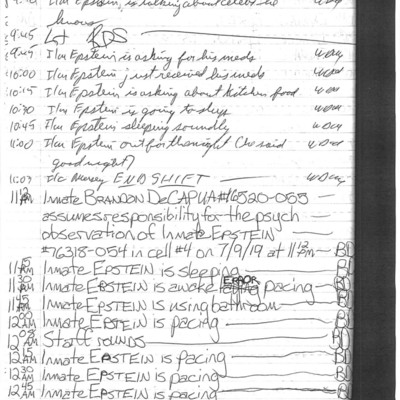 I/m Epstein, is talking about celebs he
knows
9:45 Lt RDS
9:45 I/m Epstein is asking for his meds
10:00 I/m Epstein, just received his meds
10:15 I/m Epstein is asking about kitchen food
10:30 I/m Epstein is going to sleep
10:45 I/m Epstein sleeping soundly
11:00 I/m Epstein out for the night said
goodnight
11:07 END SHIFT
11:12 PM Inmate BRANDON DeCAPUA #16520-055
assumes responsibility for the psych
observation of Inmate EPSTEIN
#76318-054 in cell #4 on 7/9/19 at 11:12 pm — BD
11:15 PM Inmate EPSTEIN is sleeping BD
11:30 PM Inmate EPSTEIN is awake ERROR pacing BD
11:45 PM Inmate EPSTEIN is using bathroom BD
12:00 AM Inmate EPSTEIN is pacing BD
12:08 AM Staff SOUNDS BD
12:15 AM Inmate EPSTEIN is pacing BD
12:30 AM Inmate EPSTEIN is pacing BD
12:45 AM Inmate EPSTEIN is pacing BD